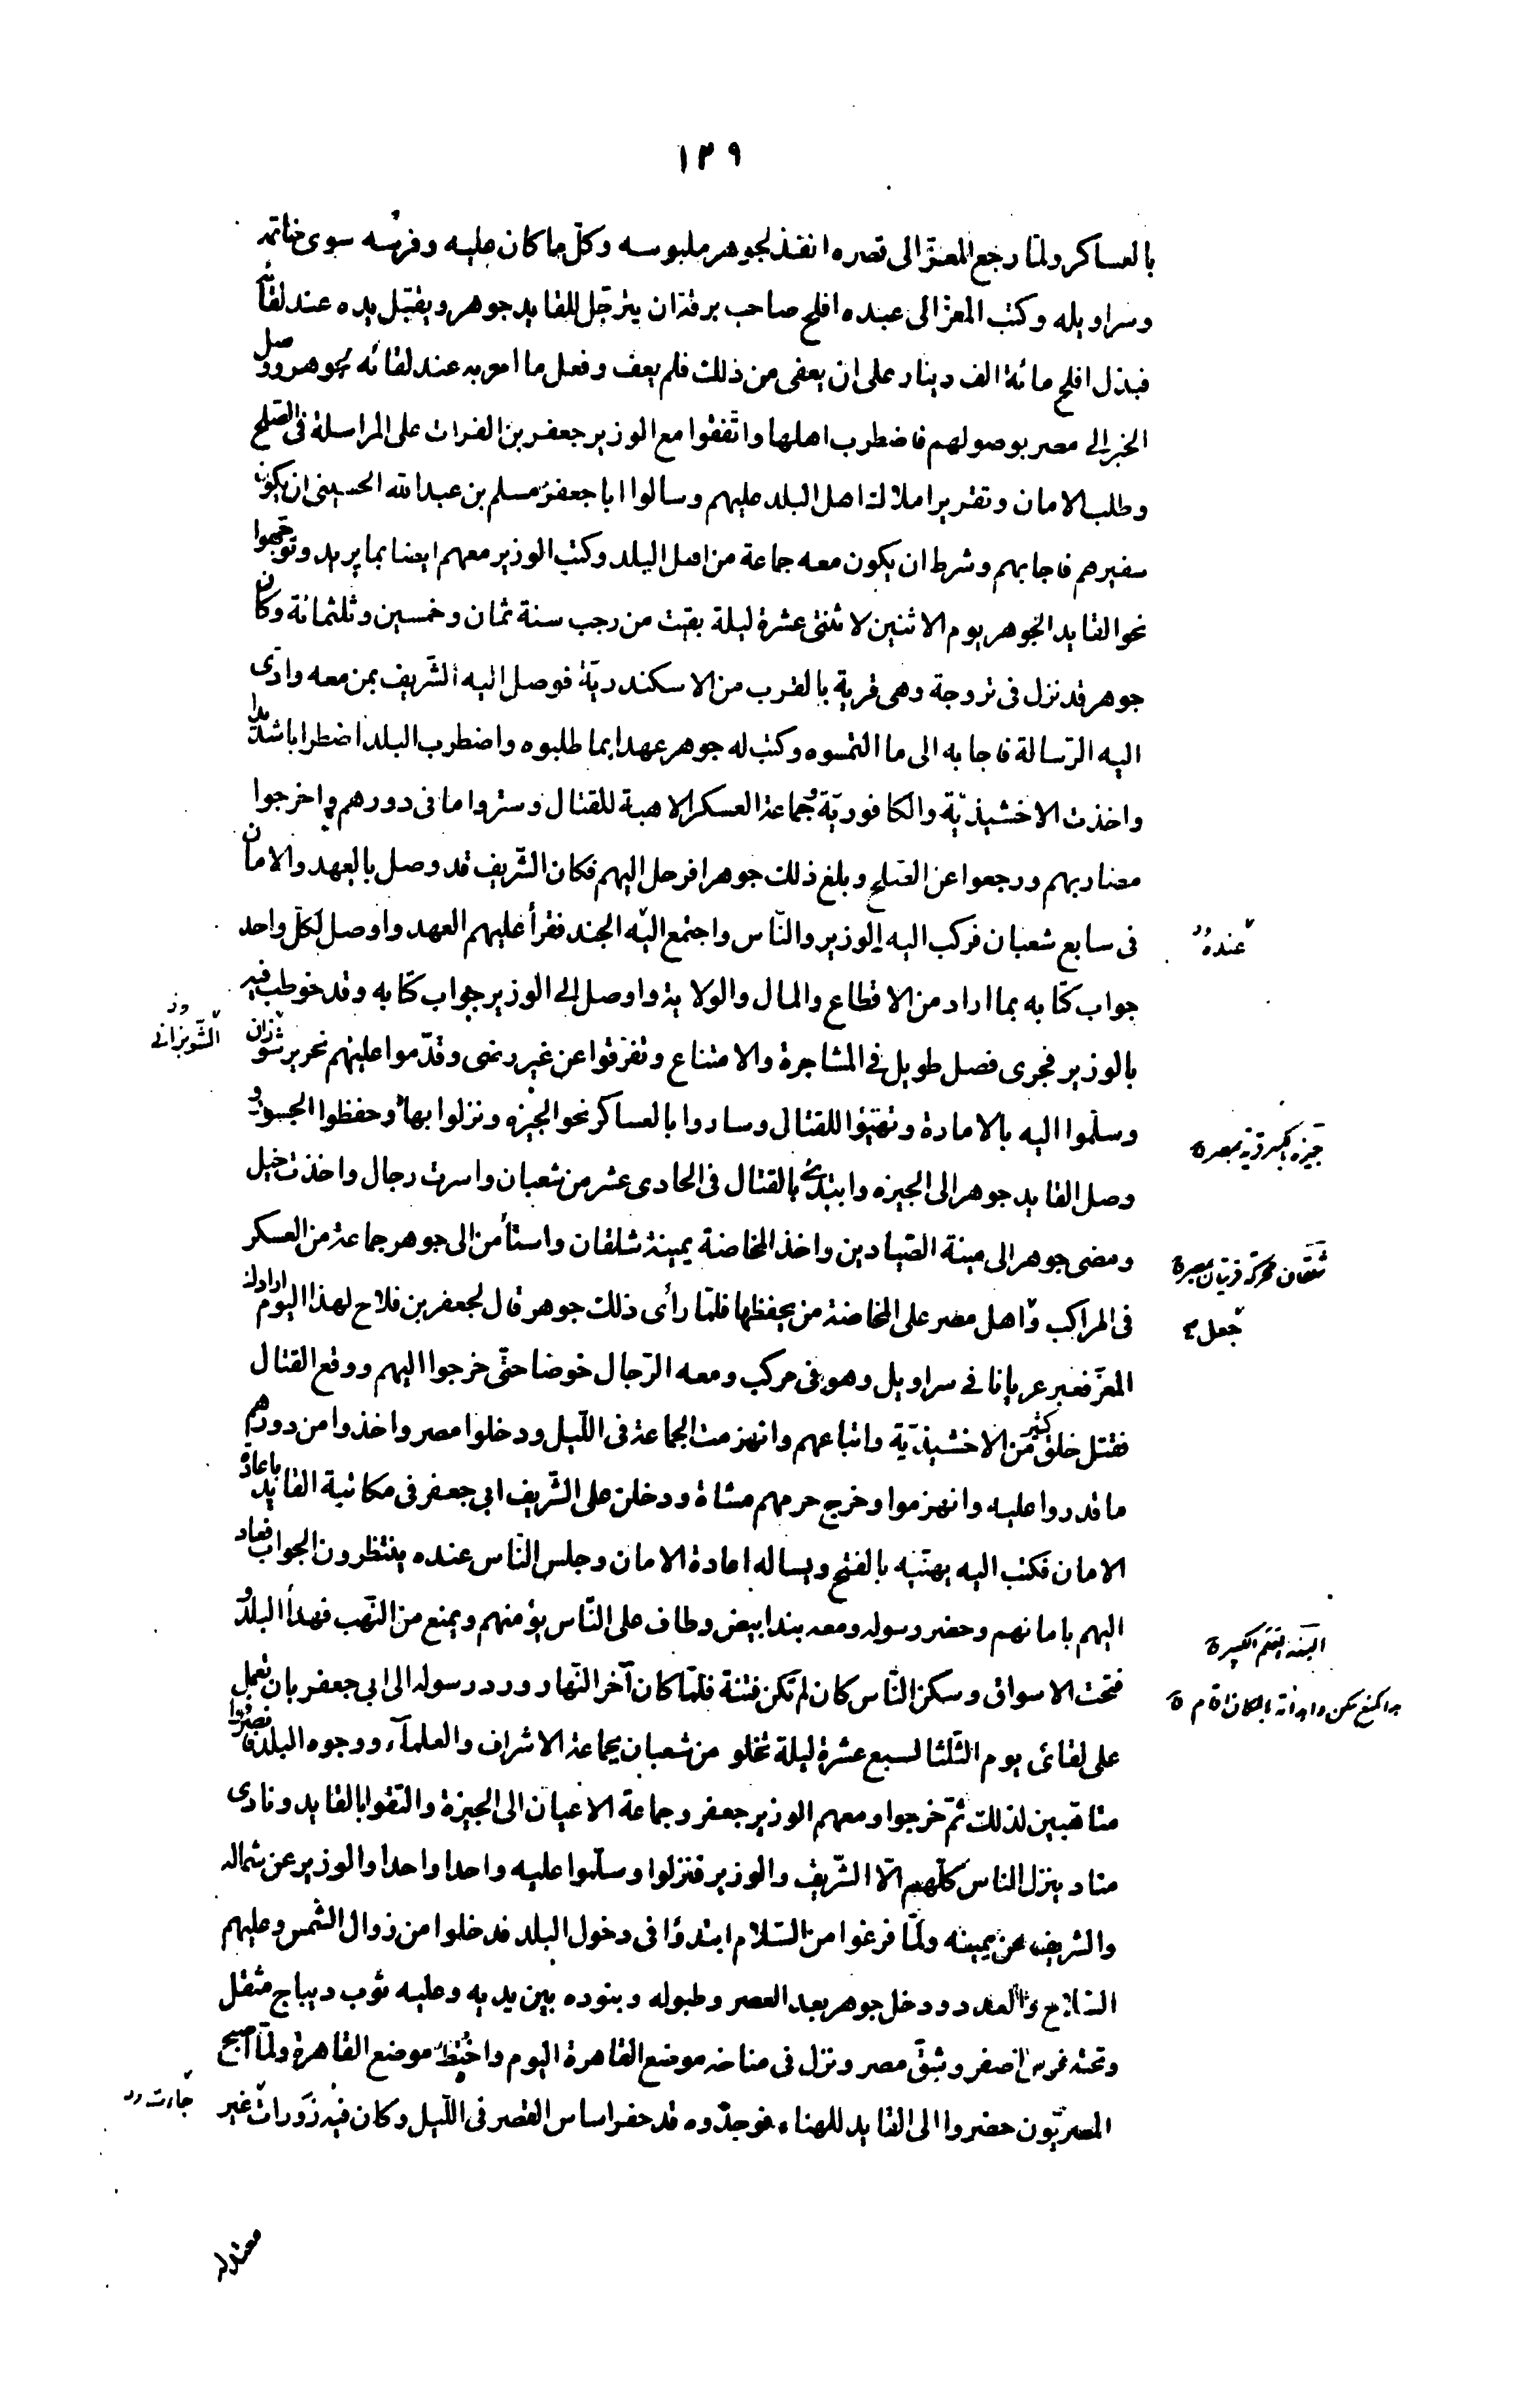 ١٣٩
بالعساكر ولمّا رجع المعزّ الى قصره انفذ لجوهر ملبوسه وكلّ ما كان عليه وفرسه سوى خاتمه
وسراويله وكتب المعزّ الى عبده افلح صاحب برقة ان يترجّل للقايد جوهر ويقبّل يده عند لقائه
فبذل افلح مائة الف دينار على ان يعفى من ذلك فلم يعف وفعل ما امر به عند لقائه بجوهر ووصل
الخبر الى مصر بوصولهم فاضطرب اهلها واتّفقوا مع الوزير جعفر بن الفرات على المراسلة فى الصّلح
وطلب الامان وتقرير املاك اهل البلد عليهم وسالوا ابا جعفر مسلم بن عبد الله الحسينى ان يكون
سفيرهم فاجابهم وشرط ان يكون معه جماعة من اهل البلد وكتب الوزير معهم ايضا بما يريد وتوجّهوا
نحو القايد الجوهر يوم الاثنين لاثنتى عشرة ليلة بقيت من رجب سنة ثمان وخمسين وثلثمائة وكان
جوهر قد نزل فى تروجة وهى قرية بالقرب من الاسكندريّة فوصل اليه الشّريف بمن معه وادّى
اليه الرّسالة فاجابه الى ما التمسوه وكتب له جوهر عهدا بما طلبوه واضطرب البلد اضطرابا شديدا
واخذت الاخشيذيّة والكافوريّة وجماعة العسكر الاهبة للقتال وستروا ما فى دورهم واخرجوا
مضاربهم ورجعوا عن الصّلح وبلغ ذلك جوهرا فرحل اليهم فكان الشّريف قد وصل بالعهد والامان
فى سابع شعبان فركب اليه الوزير والنّاس واجتمع اليه الجند فقرأ عليهم العهد واوصل لكلّ واحد
عنده
جواب كتابه بما اراد من الاقطاع والمال والولاية واوصل الى الوزير جواب كتابه وقد خوطب فيه
بالوزير فجرى فصل طويل فى المشاجرة والامتناع وتفرّقوا عن غير رضى وقدّموا عليهم نحرير شوزان
الشّويزانى
وسلّموا اليه بالامارة وتهيّؤا للقتال وساروا بالعساكر نحو الجيزه ونزلوا بها وحفظوا الجسور و
وصل القايد جوهر الى الجيزه وابتدئ بالقتال فى الحادى عشر من شعبان واسرت رجال واخذت خيل
ومضى جوهر الى منية الصّيادين واخذ المخاضة بمنية شلقان واستأمن الى جوهر جماعة من العسكر
شلقان محركة قريتان بمصر
فى المراكب و اهل مصر على المخاضة من يحفظها فلمّا رأى ذلك جوهر قال لجعفر بن فلاح لهذا اليوم ارادك
جعل
المعزّ فعبر عريانا فى سراويل وهو فى مركب ومعه الرّجال خوضا حتّى خرجوا اليهم ووقع القتال
فقتل خلق كثير من الاخشيذيّة واتباعهم وانهزمت الجماعة فى اللّيل ودخلوا مصر واخذوا من دورهم
ما قدروا عليه وانهزموا وخرج حرمهم مشاة ودخلن على الشّريف ابى جعفر فى مكاتبة القايد باعادة
الامان فكتب اليه يهنّيه بالفتح ويساله اعادة الامان وجلس النّاس عنده ينتظرون الجواب فعاد
اليهم بامانهم وحضر رسوله ومعه بند ابيض وطاف على النّاس يؤمنهم ويمنع من النّهب فهدأ البلد و
فتحت الاسواق وسكن النّاس كان لم تكن فتنة فلمّا كان آخر النّهار ورد رسوله الى ابى جعفر بان تعمل
على لقائى يوم الثّلثا لسبع عشرة ليلة تخلو من شعبان بجماعة الاشراف والعلمآء ووجوه البلد فانصرفوا
متاهّبين لذلك ثمّ خرجوا ومعهم الوزير جعفر وجماعة الاعيان الى الجيزة والتقوا بالقايد ونادى
مناد ينزل الناس كلّهم الّا الشّريف والوزير فنزلوا وسلّموا عليه واحدا واحدا والوزير عن شماله
والشريف عن يمينه ولمّا فرغوا من السّلام ابتدؤا فى دخول البلد فدخلوا من زوال الشّمس وعليهم
السّلاح والعدد ودخل جوهر بعد العصر وطبوله وبنوده بين يديه وعليه ثوب ديباج مثقل
وتحته فرس اصفر وشقّ مصر ونزل فى مناخه موضع القاهرة اليوم واختطّ موضع القاهرة ولمّا اصبح
المصريّون حضروا الى القايد للهناء فوجدوه قد حفر اساس القصر فى اللّيل وكان فيه زورات غير
جاءت
معتدلة